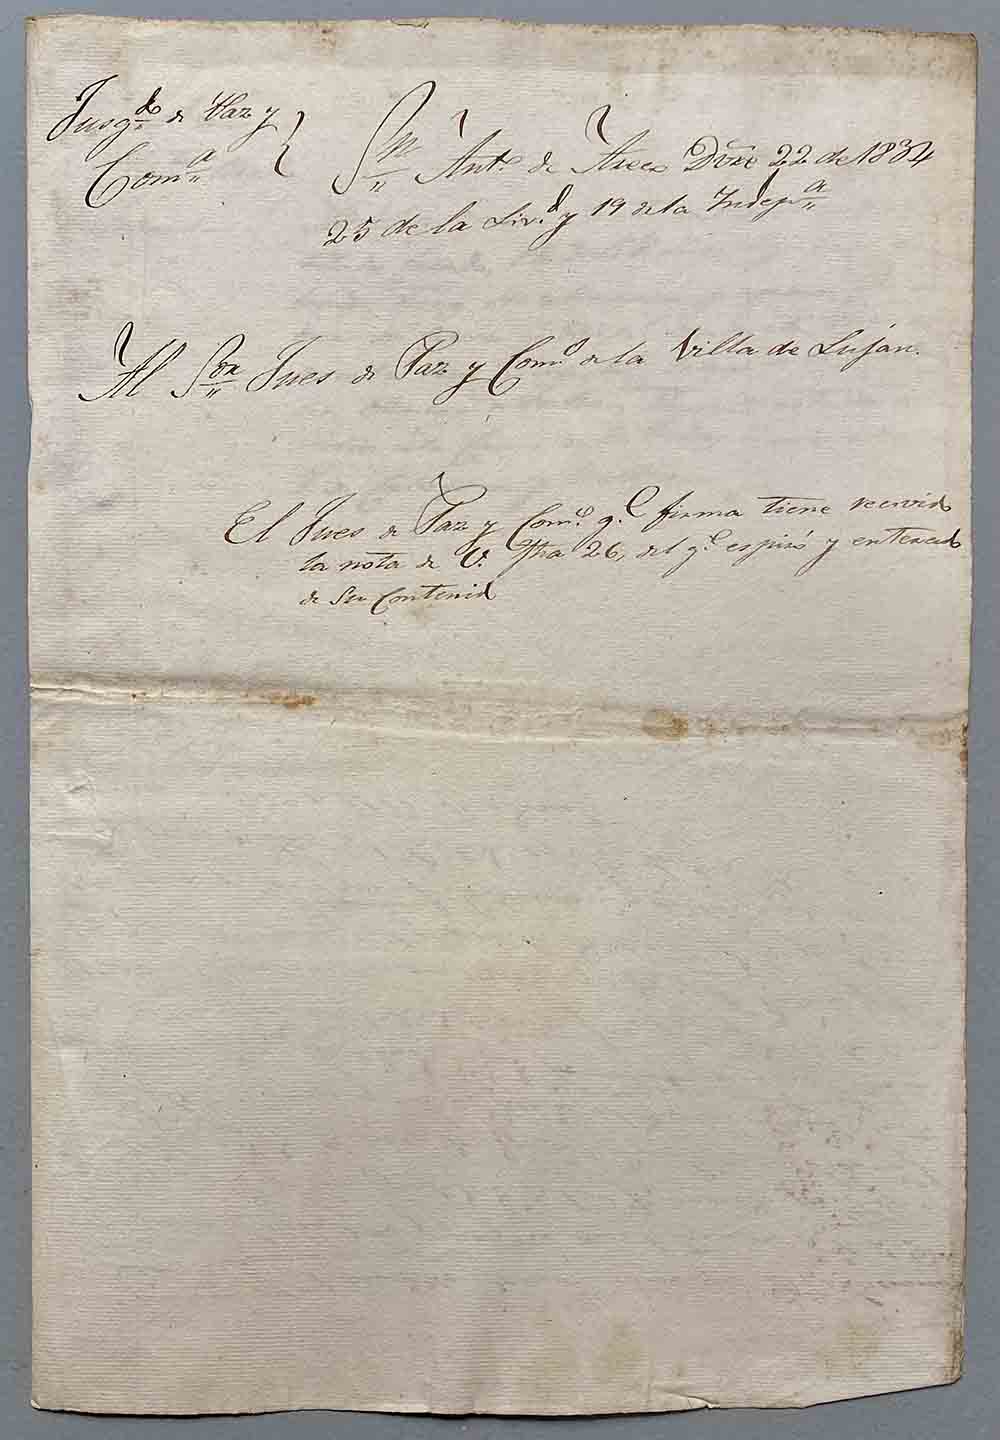 Jusg.do de Paz y
Com.a
Sn Ant.o de Areco Dbre 22 de 1834
25 de la Liv.d y 19 de la Indep.a
Al Sor Jues de Paz y Com.o de la Villa de Lujan.
El Jues de Paz y Com.o q.e firma tiene recivido
la nota de V. fha 26, del q.e espiró y enterado
de su contenido